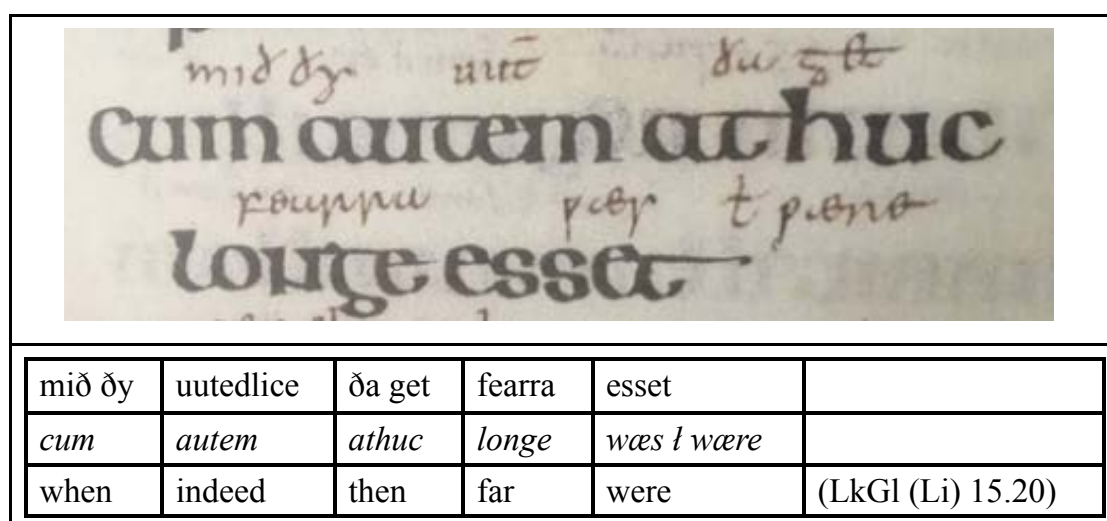 mið ðy uut̄ ða get
cum autem athuc
fearra ƿæs ł ƿære
longe esset
mið ðy uutedlice ða get fearra esset
cum autem athuc longe wæs ł wære
when indeed then far were (LkGl (Li) 15.20)